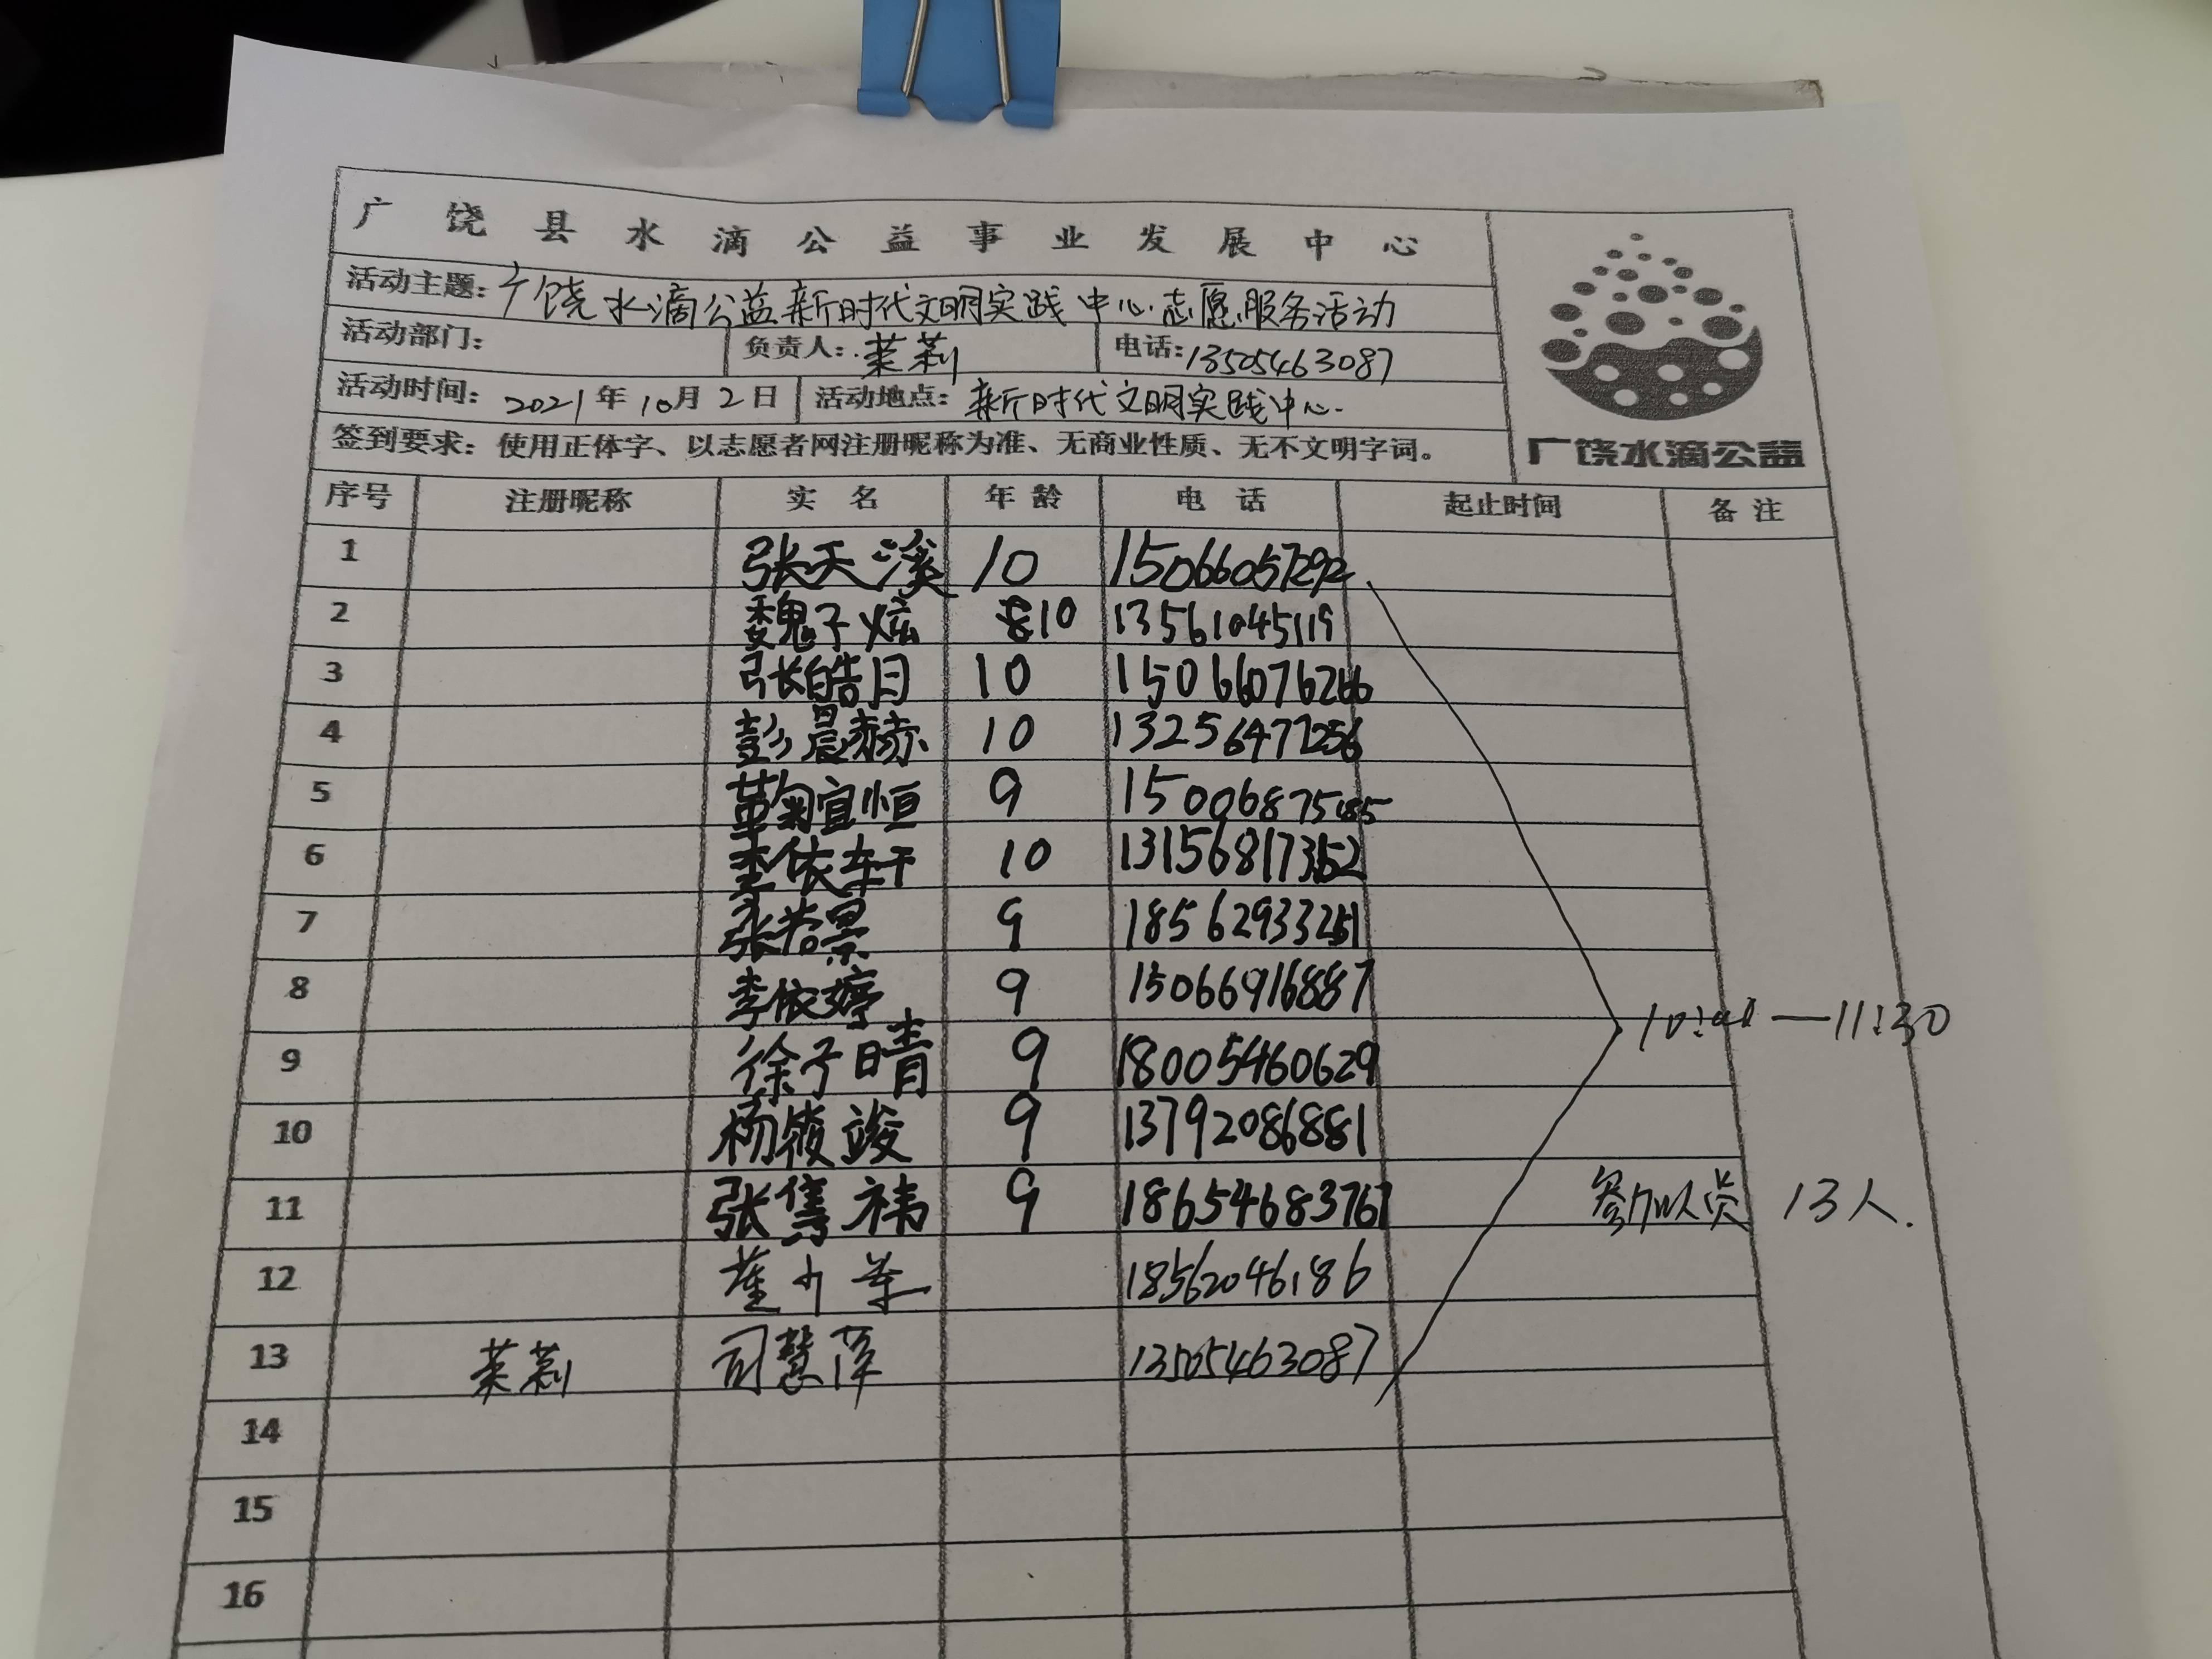 广饶县水滴公益事业发展中心
活动主题：广饶水滴公益新时代文明实践中心志愿服务活动
活动部门： 负责人：茉莉 电话：13505463087
活动时间：2021年10月2日 活动地点：新时代文明实践中心
签到要求：使用正体字、以志愿者网注册昵称为准、无商业性质、无不文明字词。
广饶水滴公益
序号 注册昵称 实名 年龄 电话 起止时间 备注
1 张天溪 10 15066057292
2 魏子炫 10 13561045119
3 张皓月 10 15066076266
4 彭晨赫 10 13256477256
5 宜恒 9
6 李依轩 10
7 张若景 9
8 李依婷 9 15066916887
9 徐子晴 9 18005460629
10 杨筱竣 9 13792086881
11 张隽祎 9 18654683767
12 18562046186
13 茉莉 司慧萍 13505463087
14
15
16
—11:30
参加人员 13人.